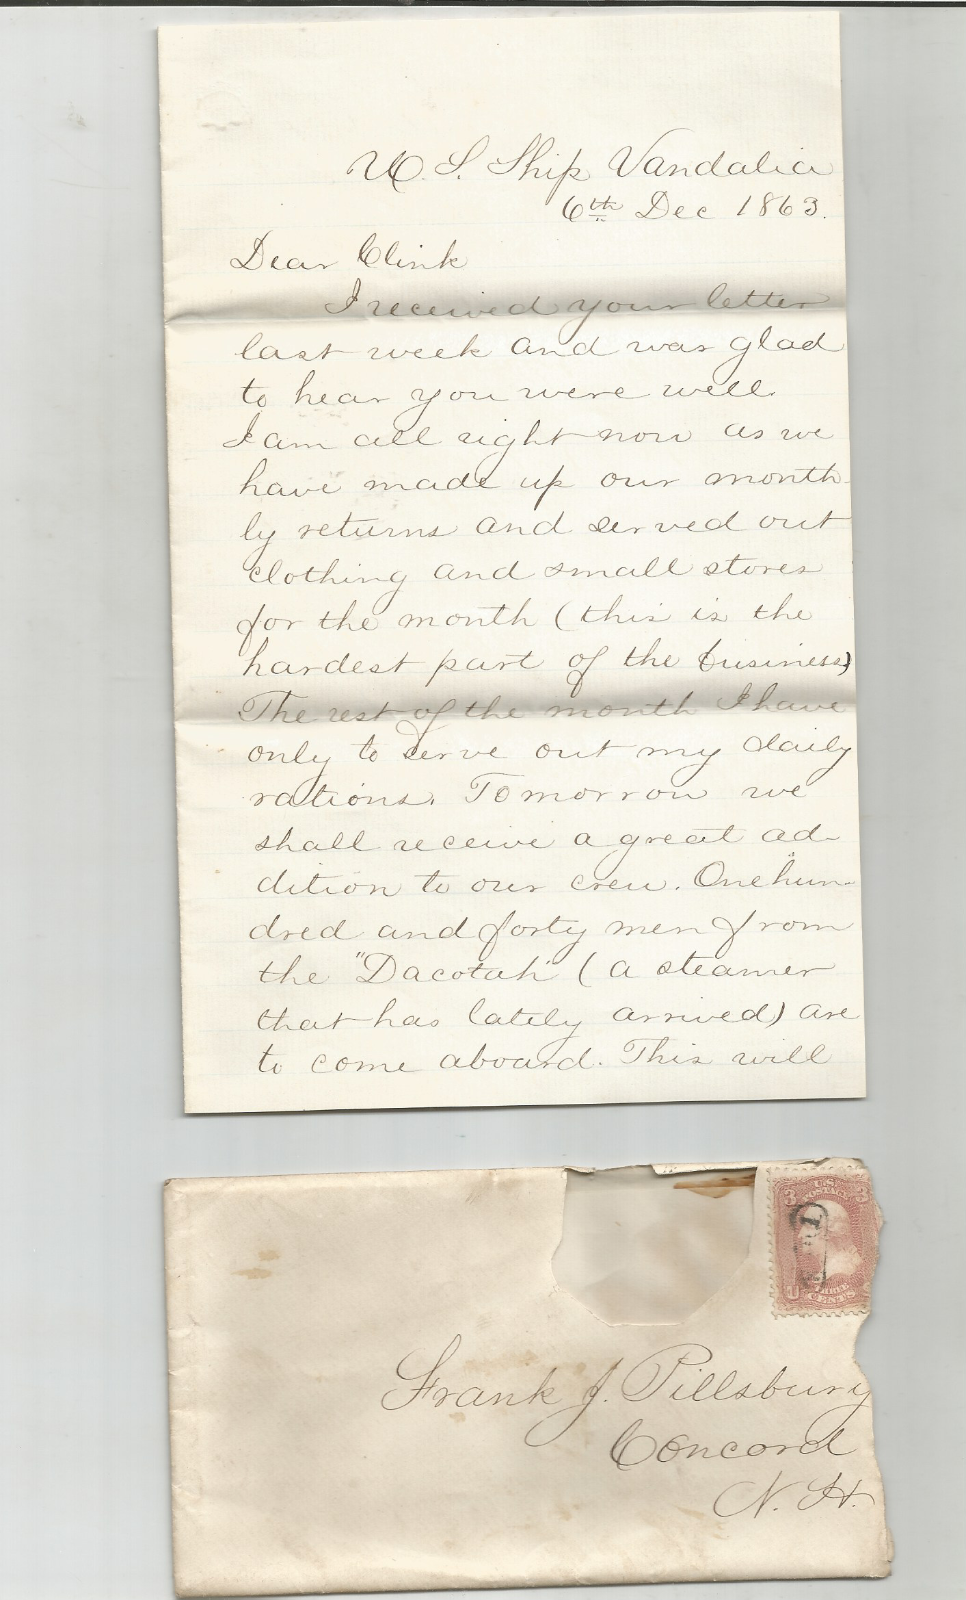 U. S. Ship Vandalia
6th Dec 1863.
Dear Clink
I received your letter
last week and was glad
to hear you were well.
I am all right now as we
have made up our month-
ly returns and served out
clothing and small stores
for the month (this is the
hardest part of the business)
The rest of the month I have
only to serve out my daily
rations. Tomorrow we
shall receive a great ad-
dition to our crew. One hun-
dred and forty men from
the "Dacotah" (a steamer
that has lately arrived) are
to come aboard. This will
3 U.S. 3
POSTAGE
U
CENTS
Frank J. Pillsbury
Concord
N. H.